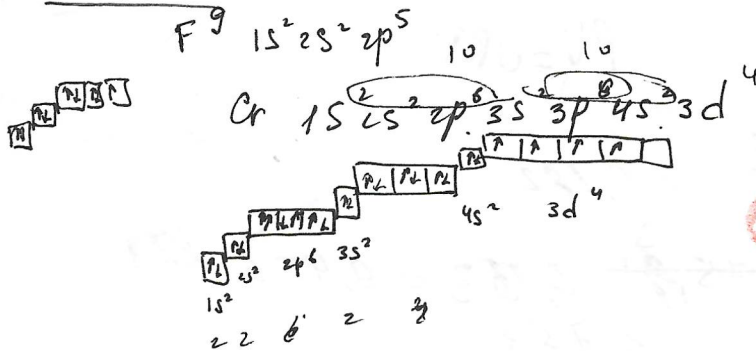 F⁹ 1s² 2s² 2p⁵
10 10
Cr 1s² 2s² 2p⁶ 3s² 3p⁶ 4s² 3d⁴
4s² 3d⁴
1s² 2s² 2p⁶ 3s²
2 2 6 2